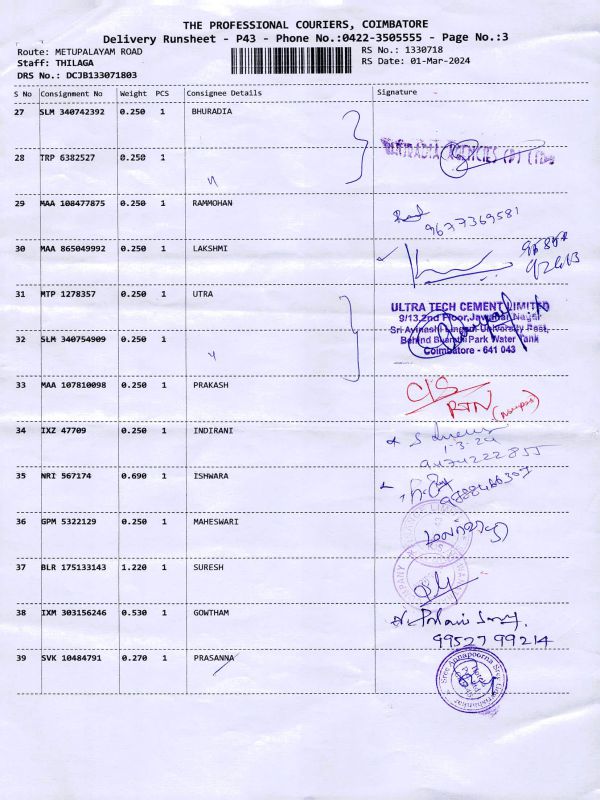 THE PROFESSIONAL COURIERS, COIMBATORE
Delivery Runsheet - P43 - Phone No.:0422-3505555 - Page No.:3
Route: METUPALAYAM ROAD
RS No.: 1330718
Staff: THILAGA
RS Date: 01-Mar-2024
DRS No.: DCJB133071803
S No Consignment No Weight PCS Consignee Details Signature
27 SLM 340742392 0.250 1 BHURADIA
28 TRP 6382527 0.250 1
29 MAA 108477875 0.250 1 RAMMOHAN
9677369581
30 MAA 865049992 0.250 1 LAKSHMI
31 MTP 1278357 0.250 1 UTRA
ULTRA TECH CEMENT LIMITED
9/13, 2nd Floor, Jawahar Nagar
Sri Avinashi Lingam University Post,
Behind Bharathi Park Water Tank
Coimbatore - 641 043
32 SLM 340754909 0.250 1
33 MAA 107810098 0.250 1 PRAKASH
C/S
RTN
34 IXZ 47709 0.250 1 INDIRANI
1-3-24
9474222855
35 NRI 567174 0.690 1 ISHWARA
36 GPM 5322129 0.250 1 MAHESWARI
37 BLR 175133143 1.220 1 SURESH
38 IXM 303156246 0.530 1 GOWTHAM
99527 99214
39 SVK 10484791 0.270 1 PRASANNA
Sree Annapoorna Sree